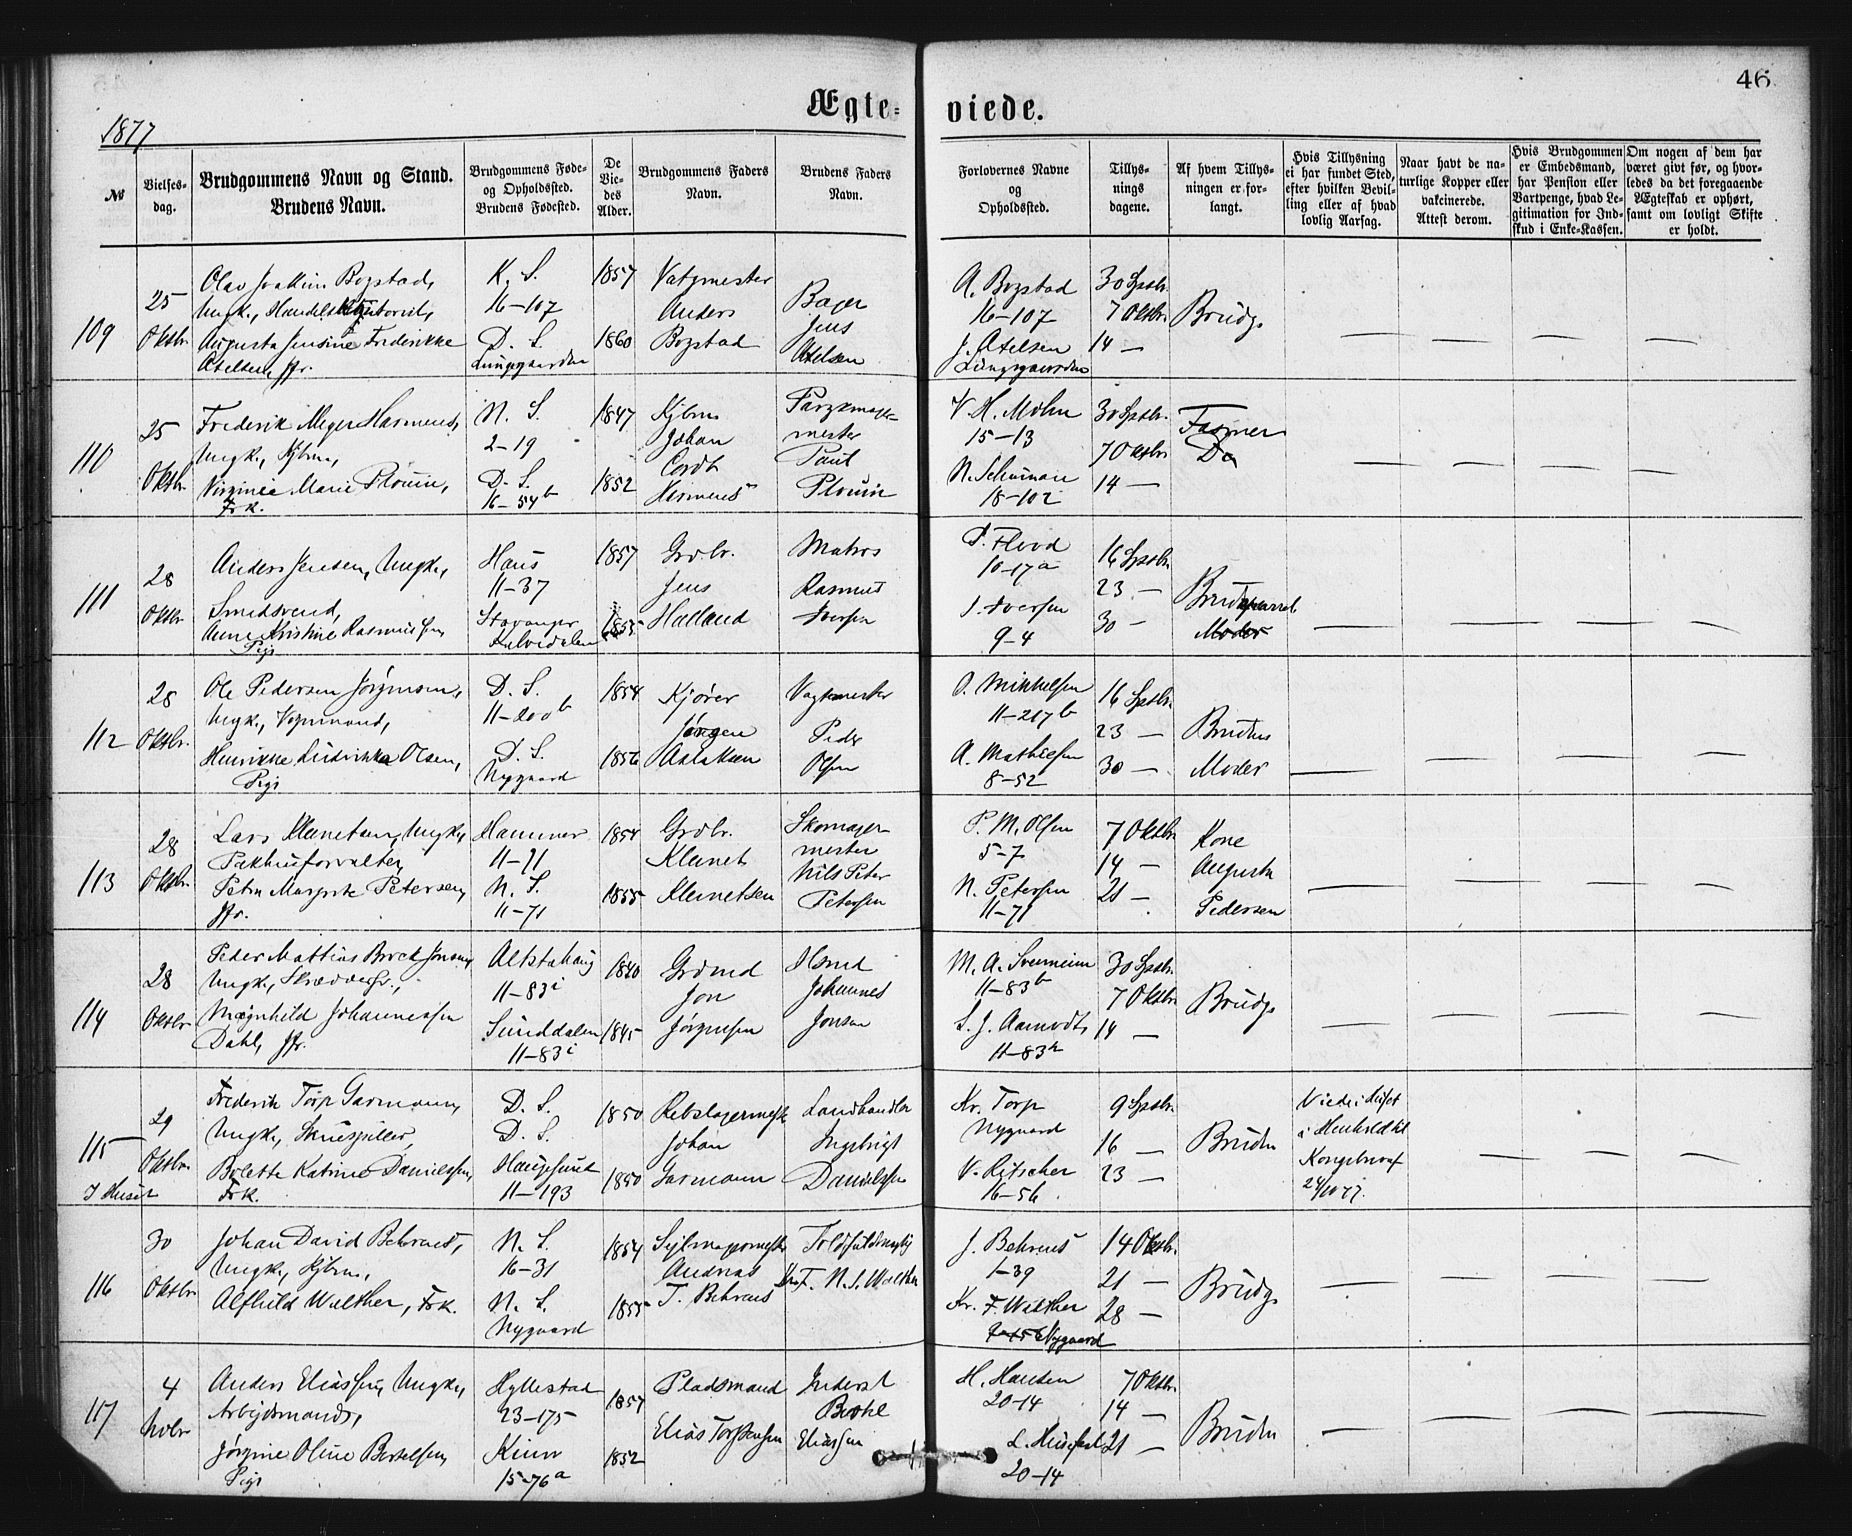 46
Ægte-
viede.
1877
№
Vielses-
dag.
Brudgommens Navn og Stand.
Brudens Navn.
Brudgommens Føde-
og Opholdssted.
Brudens Fødested.
De
Vie-
des
Alder.
Brudgommens Faders
Navn.
Brudens Faders
Navn.
Forlovernes Navne
og
Opholdssted.
Tillys-
nings
dagene.
Af hvem Tillys-
ningen er for-
langt.
Hvis Tillysning
ei har fundet Sted,
efter hvilken Bevil-
ling eller af hvad
lovlig Aarsag.
Naar havt de na-
turlige Kopper eller
vakcinerede.
Attest derom.
Hvis Brudgommen
er Embedsmand,
har Pension eller
Vartpenge, hvad Le-
gitimation for Ind-
skud i Enke-Kassen.
Om nogen af dem har
været givt før, og hvor-
ledes da det foregaaende
Ægteskab er ophørt,
samt om lovligt Skifte
er holdt.
109
25
Oktbr.
Olav Joakim Bogstad,
Ungk., Handels
Augusta Jensine Frederikke
Atelsen, Jfr.
K. S.
16-107
D. S.
Lungegaarden
1857
1860
Anders
Bogstad
Bager
Jens
Atelsen
A. Bogstad
16-107
J. Atelsen
Lungegaarden
30 Sptbr.
7 Oktbr.
14 —
Brudg.
110
25
Oktbr.
Frederik Meyer Harmens,
Ungk., Kjbm.,
Virginie Marie Plouin,
Frk.
N. S.
2-19
D. S.
16-54b
1847
1852
Kjbm.
Johan
Cordt
Harmens
mester
Paul
Plouin
V. H. Mohn
15-13
N. Schuman
18-102
30 Sptbr.
7 Oktbr.
14 —
Fasmer
Do
111
28
Oktbr.
Anders Jensen, Ungk.,
Smedsvend,
Anne Kristine Rasmussen,
Pige
Haus
11-37
Stavanger
1857
1855
Grdbr.
Jens
Halland
Matros
Rasmus
Iversen
P. Flood
10-17a
I. Iversen
9-4
16 Sptbr.
23 —
30 —
Moder
112
28
Oktbr.
Ole Pedersen Jørgensen,
Ungk., Vognmand,
Henrikke Ludvikka Olsen,
Pige
D. S.
11-200b
D. S.
Nygaard
1854
1856
Kjører
Jørgen
Aslaksen
Vagtmester
Peder
Olsen
O. Mikkelsen
11-217b
A. Mathiesen
8-52
16 Sptbr.
23 —
30 —
Brudens
Moder
113
28
Oktbr.
Lars Klemetsen, Ungk.,
Pakhusforvalter,
Petra Margrete Petersen,
Jfr.
Hammer
11-71
N. S.
11-71
1854
1855
Grdbr.
Klemet
Klemetsen
Skomager-
mester
Nils Peter
Petersen
P. M. Olsen
5-7
N. Petersen
11-71
7 Oktbr.
14 —
21 —
Kone
Augusta
Pedersen
114
28
Oktbr.
Peder Mattias Brock Jonsen,
Ungk., Skrædder,
Magnhild Johannessen
Dahl, Jfr.
Altstahaug
11-83i
Sunddalen
11-83i
1840
1845
Grdmd
Jon
Jørgensen
Johannes
Jonsen
M. A. Svennevim
11-83b
L. J. Aamodt,
11-83h
30 Sptbr.
7 Oktbr.
14 —
Brudg.
115
I Huset
29
Oktbr.
Frederik Torp Garmann,
Ungk., Skuespiller,
Bolette Katrine Danielsen,
Frk.
D. S.
D. S.
Haugesund
11-193
1850
1850
Rebslagermester
Johan
Garmann
Landhandler
Ingebrigt
Danielsen
Kr. Torp
Nygaard
V. Ritscher
16-56
9 Sptbr.
16 —
23 —
Bruden
Viede i Huset
i Henhold til
Kongebrev af
24/10 77.
116
30
Oktbr.
Johan David Behrens,
Ungk., Kjbm.,
Alfhild Walther, Frk.
N. S.
16-31
N. S.
Nygaard
1854
1855
Sejlmagermester
Andreas
T. Behrens
F. N. S. Walther
J. Behrens
1-39
Kr. F. Walther
Nygaard
14 Oktbr.
21 —
28 —
Brudg.
117
4
Novbr.
Anders Eliassen, Ungk.,
Arbeidsmand,
Jørgine Oline Bertelsen,
Pige
Hyllestad
23-175
Kinn
15-76a
1857
1852
Pladsmand
Elias Torstensen
Inderst
Bertel
Eliassen
H. Hansen
20-14
20-14
7 Oktbr.
14 —
21 —
Bruden